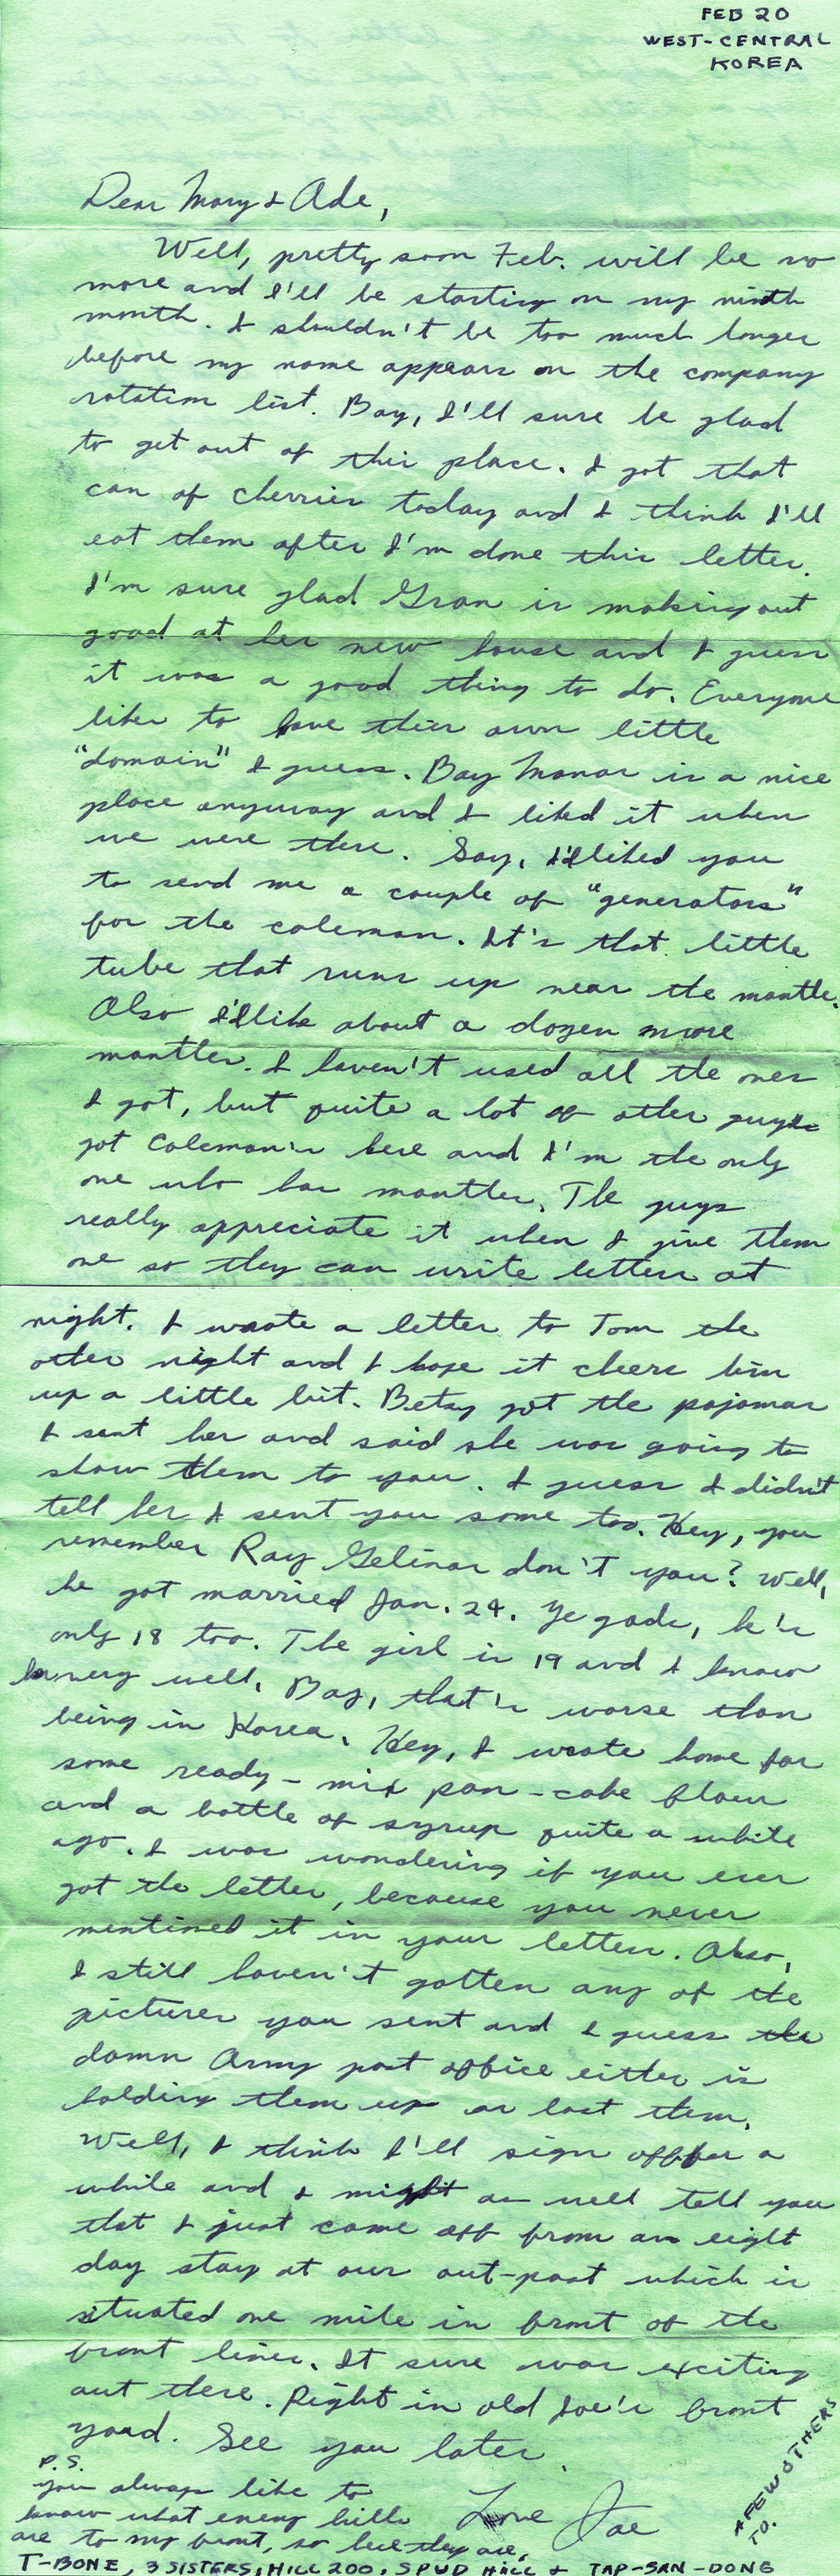 FEB 20
WEST-CENTRAL
KOREA
Dear Mary & Ade,
Well, pretty soon Feb. will be no
more and I'll be starting on my ninth
month. I shouldn't be too much longer
before my name appears on the company
rotation list. Boy, I'll sure be glad
to get out of this place. I got that
can of cherries today and I think I'll
eat them after I'm done this letter.
I'm sure glad Gran is making out
good at her new house and I guess
it was a good thing to do. Everyone
likes to have thier own little
"domain" I guess. Bay Manor is a nice
place anyway and I liked it when
we were there. Say, I'd liked you
to send me a couple of "generators"
for the coleman. It's that little
tube that runs up near the mantle.
Also I'd like about a dozen more
mantles. I haven't used all the ones
I got, but quite a lot of other guys
got Coleman's here and I'm the only
one who has mantles. The guys
really appreciate it when I give them
one so they can write letters at
night. I wrote a letter to Tom the
other night and I hope it cheers him
up a little bit. Betsy got the pajamas
I sent her and said she was going to
show them to you. I guess I didn't
tell her I sent you some too. Hey, you
remember Ray Gelinas don't you? Well,
he got married Jan. 24. Ye gads, he's
only 18 too. The girl is 19 and I know
her very well. Boy, that's worse than
being in Korea. Hey, I wrote home for
some ready-mix pan-cake flour
and a bottle of syrup quite a while
ago. I was wondering if you ever
got the letter, because you never
mentioned it in your letters. Also,
I still haven't gotten any of the
pictures you sent and I guess the
damn Army post office either is
holding them up or lost them.
Well, I think I'll sign off for a
while and I might as well tell you
that I just came off from an eight
day stay at our out-post which is
situated one mile in front of the
front lines. It sure was exciting
out there. Right in old Joe's front
yard. See you later.
Love Joe
P.S.
you always like to
know what enemy hills
are to my front, so here they are,
T-BONE, 3 SISTERS, HILL 200, SPUD HILL & TAP-SAN-DONG
A FEW OTHERS
TO.